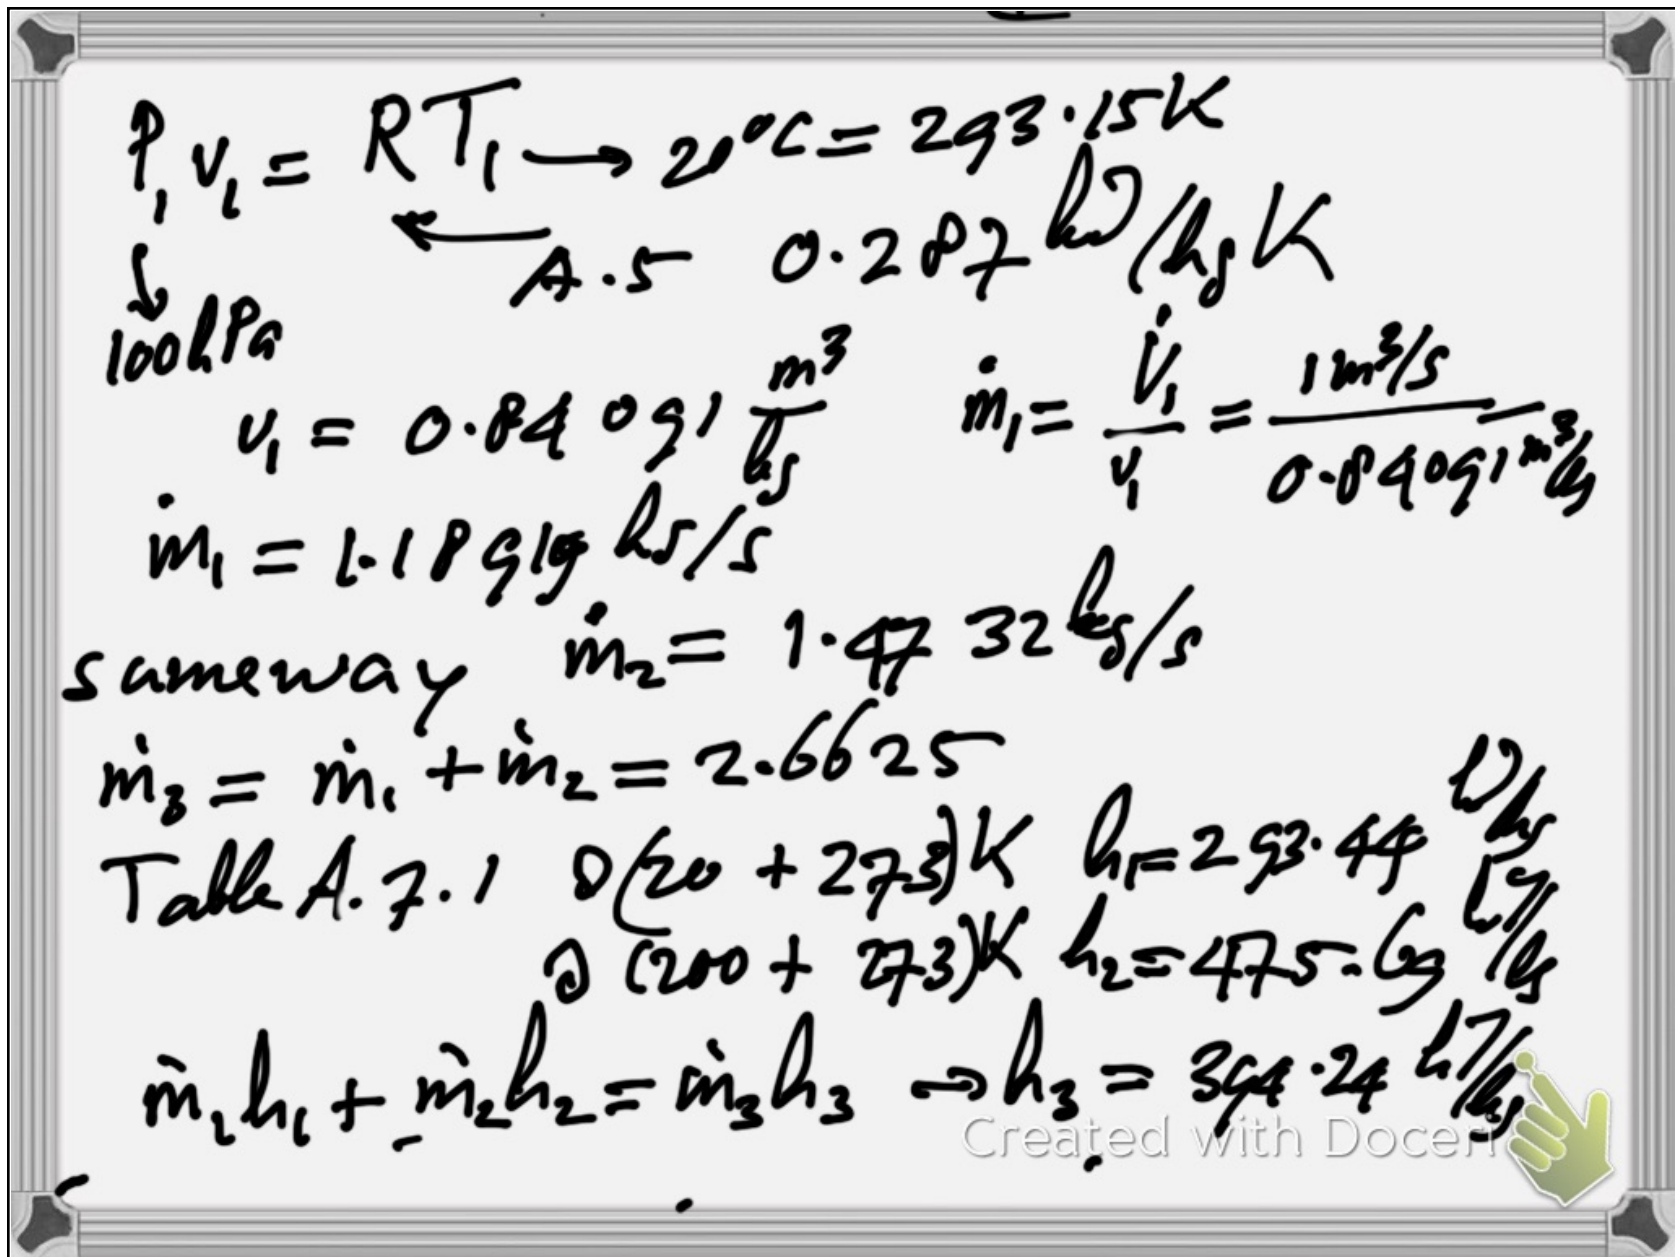 P₁ v₁ = RT₁ → 20°C = 293.15K
← A.5 0.287 kJ/kg K
↓
100kPa
v₁ = 0.84091 m³/kg ṁ₁ = V̇₁/v₁ = 1m³/s / 0.84091 m³/kg
ṁ₁ = 1.18919 kg/s
sameway ṁ₂ = 1.4732 kg/s
ṁ₃ = ṁ₁ + ṁ₂ = 2.6625
Table A.7.1 @(20 + 273)K h₁ = 293.44 kJ/kg
@ (200 + 273)K h₂ = 475.69 kJ/kg
ṁ₁h₁ + ṁ₂h₂ = ṁ₃h₃ → h₃ = 394.24 kJ/kg
Created with Doceri